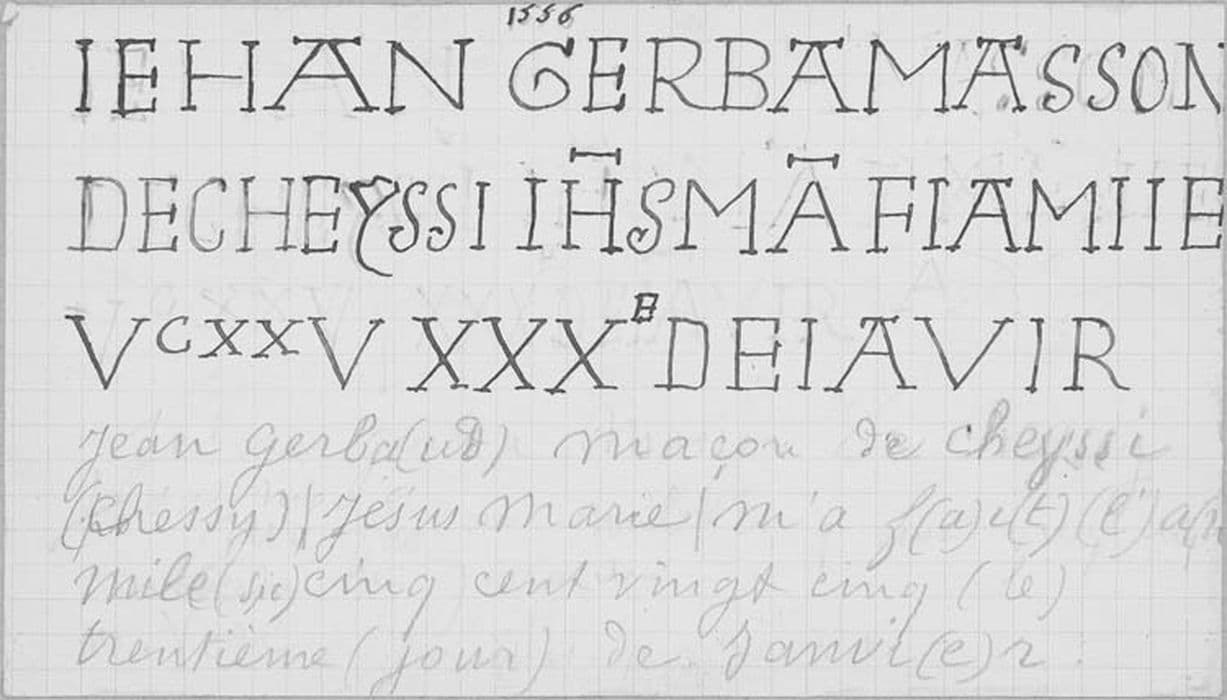 1556
IEHAN GERBAMASSON
DECHEYSSI IH̄SMĀ FIAMIIE
VCXXV XXXE DEIAVIR
Jean Gerba(ud) maçon de Cheyssi
(Chessy) | Jésus Marie | m'a f(a)i(t) (l')a(n
mile (sic) cinq cent vingt cinq (le)
trentième (jour) de Janvi(e)r.